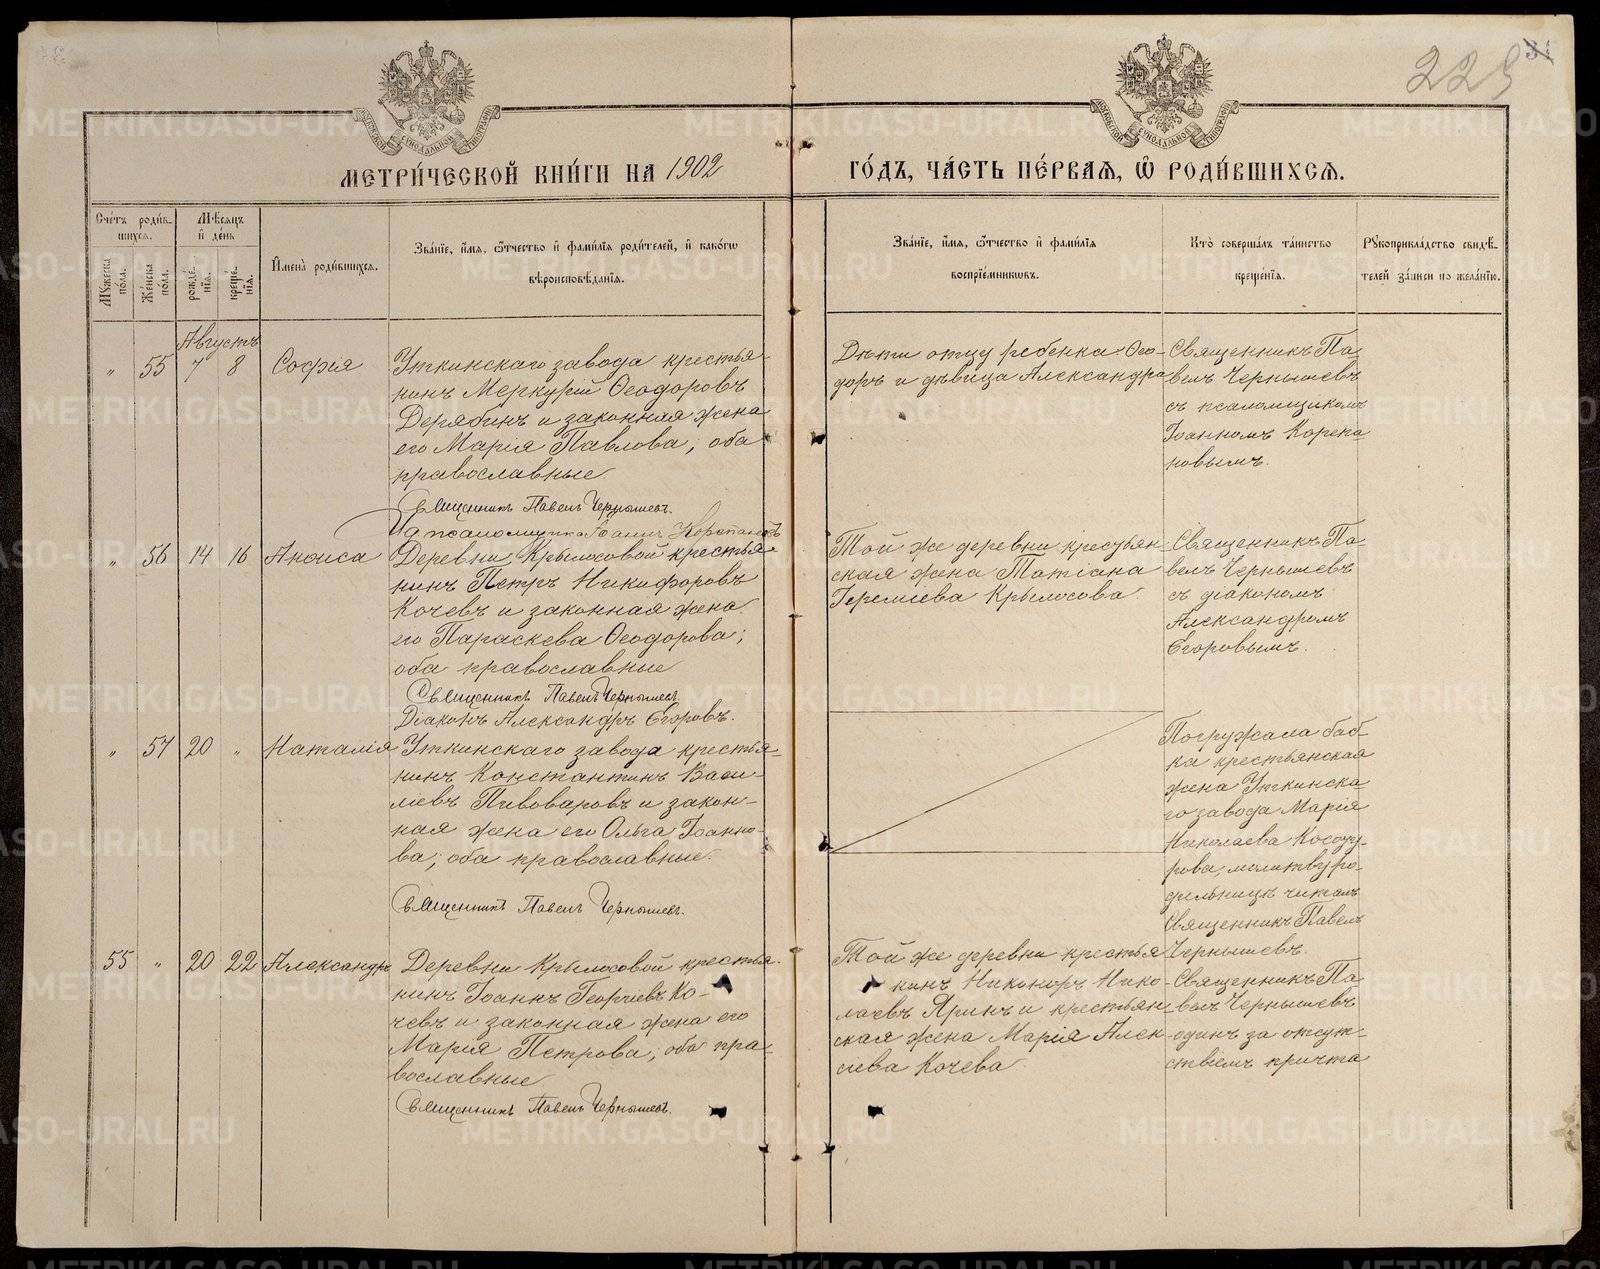 229
31
МЕТРИ́ЧЕСКОЙ КНИ́ГИ НА 1902
ГО́ДЪ, ЧА́СТЬ ПЕ́РВАѦ, Ѽ РОДИ́ВШИХСѦ.
Сче́тъ роди́в-
шихсѧ.
Мѣ́сѧцъ
и҆ де́нь
Мꙋ́жеска по́ла.
Же́нска по́ла.
рожде́-
нїѧ.
креще́-
нїѧ.
И҆мена̀ роди́вшихсѧ.
Зва́нїе, и҆́мѧ, ѻ҆́тчество и҆ фами́лїѧ роди́телей, и҆ како́гѡ
вѣроисповѣ́данїѧ.
Зва́нїе, и҆́мѧ, ѻ҆́тчество и҆ фами́лїѧ
воспрїе́мниковъ.
Кто̀ соверша́лъ та́инство
креще́нїѧ.
Рꙋкоприкла́дство свидѣ́-
телей за́писи по жела́нїю.
Августъ
" 55 7 8 Софія
Уткинскаго завода крестья-
нинъ Меркурій Ѳеодоровъ
Дерябинъ и законная жена
его Марія Павлова, оба
православные
Священникъ Павелъ Чернышевъ.
Дѣти отцу ребенка Ѳео-
доръ и дѣвица Александра
Священникъ Па-
велъ Чернышевъ
съ псаломщикомъ
Іоанномъ
" 56 14 16 Анѳиса
Деревни Крылосовой крестья-
нинъ Петръ Никифоровъ
Кочевъ и законная жена
его Параскева Ѳеодорова;
оба православные
Священникъ Павелъ Чернышевъ.
Діаконъ Александръ Егоровъ.
Той же деревни крестьян-
ская жена Татіана
Крылосова
Священникъ Па-
велъ Чернышевъ
съ діакономъ
Александромъ
Егоровымъ.
" 57 20 " Наталія
Уткинскаго завода крестья-
нинъ Константинъ Васи-
льевъ Пивоваровъ и закон-
ная жена его Ольга Іоанно-
ва; оба православные.
Священникъ Павелъ Чернышевъ.
Погружала баб-
ка крестьянская
жена Уткинска-
го завода Марія
Николаева
молитву ро-
дильницѣ читалъ
Священникъ Павелъ
Чернышевъ.
55 " 20 22 Александръ
Деревни Крылосовой крестья-
нинъ Іоаннъ Георгіевъ Ко-
чевъ и законная жена его
Марія Петрова, оба пра-
вославные
Священникъ Павелъ Чернышевъ.
Той же деревни крестья-
нинъ Никоноръ Нико-
лаевъ Яринъ и крестьян-
ская жена Марія Алек-
сіева Кочева
Священникъ Па-
велъ Чернышевъ
одинъ за отсут-
ствіемъ причта
METRIKI.GASO-URAL.RU